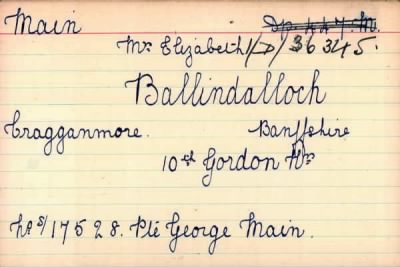 Main
Mrs Elizabeth 1/D/36345.
Ballindalloch
Cragganmore. Banffshire
10th Gordon Hrs
No S/17528. Pte George Main.